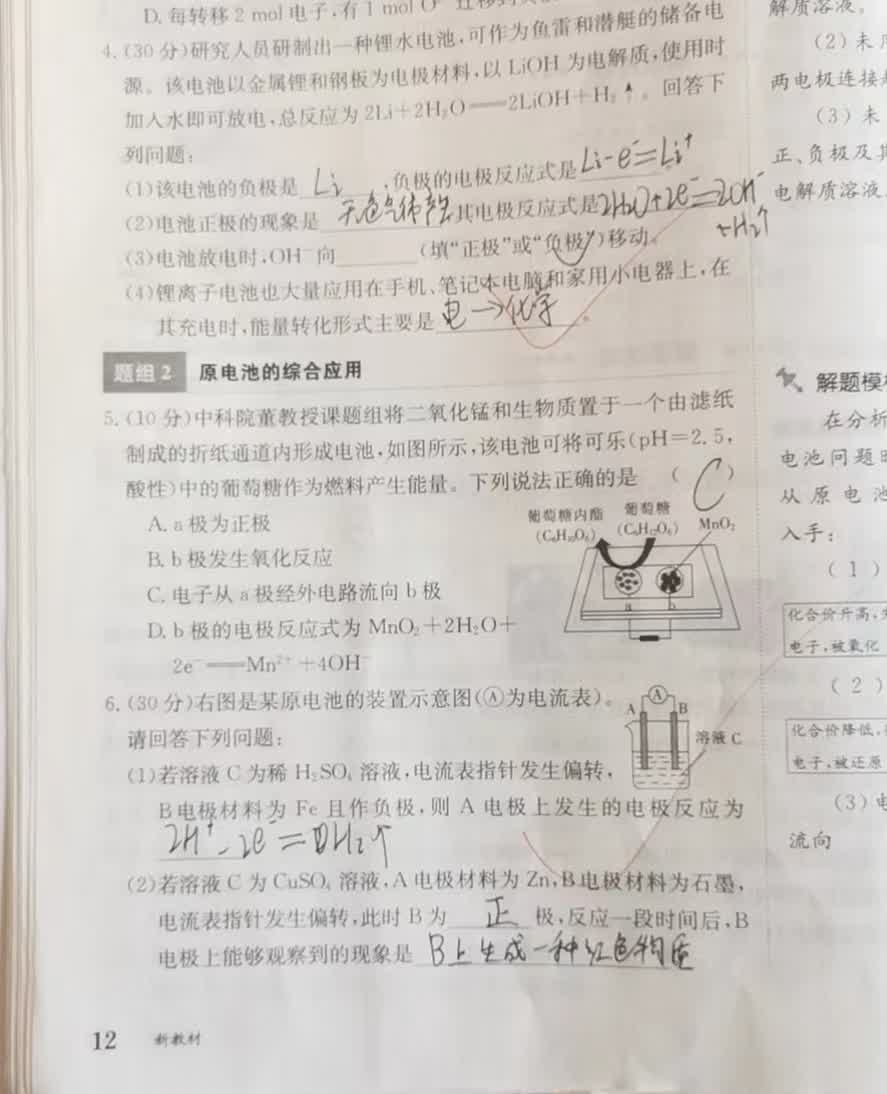 D. 每转移 2 mol 电子,有 1 mol O
4. (30 分)研究人员研制出一种锂水电池,可作为鱼雷和潜艇的储备电
源。该电池以金属锂和钢板为电极材料,以 LiOH 为电解质,使用时
加入水即可放电,总反应为 2Li+2H₂O══2LiOH+H₂↑。回答下
列问题:
(1)该电池的负极是 Li ,负极的电极反应式是 Li-e⁻=Li⁺
(2)电池正极的现象是 无色气体产生 ,其电极反应式是 2H₂O+2e⁻=2OH⁻
+H₂↑
(3)电池放电时,OH⁻向______(填“正极”或“负极”)移动。
(4)锂离子电池也大量应用在手机、笔记本电脑和家用小电器上,在
其充电时,能量转化形式主要是 电→化学 。
题组 2 原电池的综合应用
5. (10 分)中科院董教授课题组将二氧化锰和生物质置于一个由滤纸
制成的折纸通道内形成电池,如图所示,该电池可将可乐(pH=2.5,
酸性)中的葡萄糖作为燃料产生能量。下列说法正确的是 ( C )
A. a 极为正极
B. b 极发生氧化反应
C. 电子从 a 极经外电路流向 b 极
D. b 极的电极反应式为 MnO₂+2H₂O+
2e⁻══Mn²⁺+4OH⁻
葡萄糖内酯
(C₆H₁₀O₆)
葡萄糖
(C₆H₁₂O₆)
MnO₂
a b
6. (30 分)右图是某原电池的装置示意图(Ⓐ为电流表)。
请回答下列问题:
A Ⓐ B
溶液 C
(1)若溶液 C 为稀 H₂SO₄ 溶液,电流表指针发生偏转,
B 电极材料为 Fe 且作负极,则 A 电极上发生的电极反应为
2H⁺-2e⁻=H₂↑
(2)若溶液 C 为 CuSO₄ 溶液,A 电极材料为 Zn,B 电极材料为石墨,
电流表指针发生偏转,此时 B 为 正 极,反应一段时间后,B
电极上能够观察到的现象是 B上生成一种红色物质
12 新教材
解质溶液。
(2)未
两电极连接
(3)未
正、负极及其
电解质溶液
解题模
在分析
电池问题
从原电池
入手:
(1)
化合价升高,
电子,被氧化
(2)
化合价降低,
电子,被还原
(3)电
流向